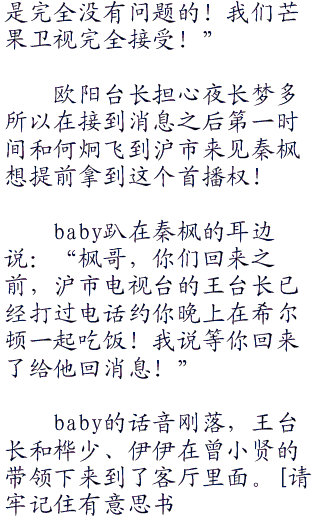 是完全没有问题的！我们芒
果卫视完全接受！”
欧阳台长担心夜长梦多
所以在接到消息之后第一时
间和何炯飞到沪市来见秦枫
想提前拿到这个首播权！
baby趴在秦枫的耳边
说：“枫哥，你们回来之
前，沪市电视台的王台长已
经打过电话约你晚上在希尔
顿一起吃饭！我说等你回来
了给他回消息！”
baby的话音刚落，王台
长和桦少、伊伊在曾小贤的
带领下来到了客厅里面。[请
牢记住有意思书